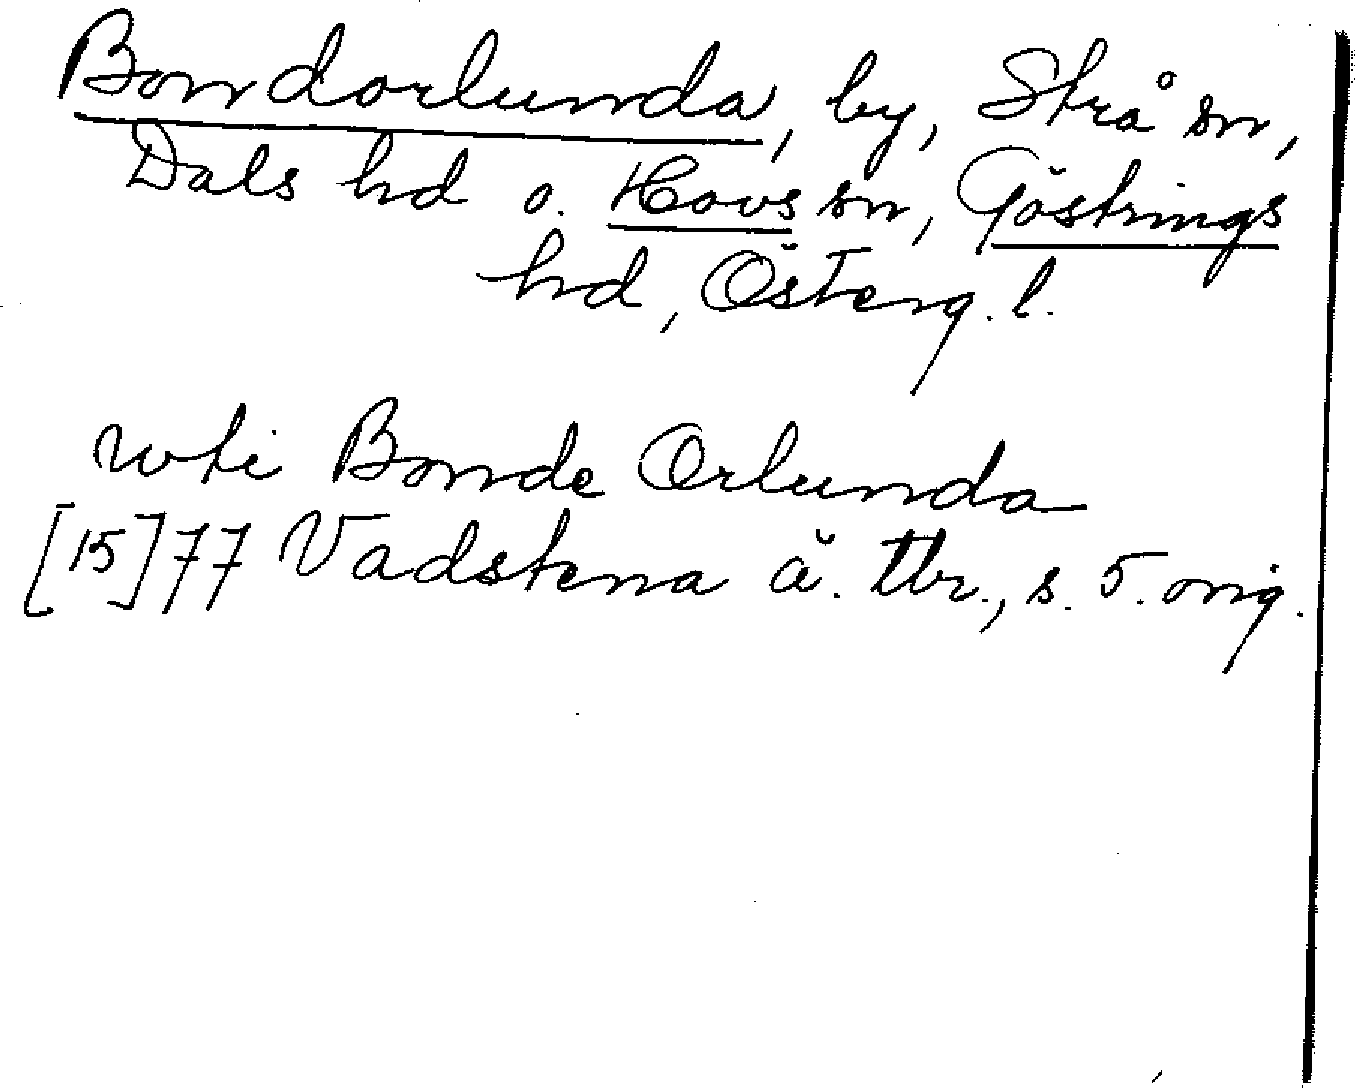 Bondorlunda, by, Strå sn,
Dals hd o. Hovs sn, Göstrings
hd, Österg. l.
wti Bonde Orlunda
[15]77 Vadstena ä. tbr., s. 5. orig.